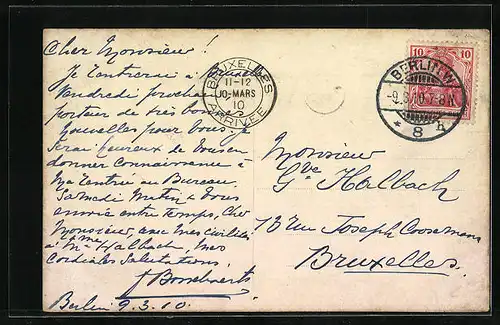 Cher Monsieur!
Je rentrerai à Bruxelles
Vendredi prochain
porteur de très bonnes
nouvelles pour vous. Je
serai heureux de vous en
donner connaissance à
ma rentrée au Bureau
Samedi matin. à vous
envoie entre temps, Cher
Monsieur, avec mes civilités
à Mme Halbach, mes
cordiales salutations,
Berlin 9.3.10
BRUXELLES
11-12
10-MARS
10
ARRIVEE
10 10
BERLIN W
-9.3.10.7-8N
* 8 h
Monsieur
Gve Halbach
13 rue Joseph Coosemans
Bruxelles.